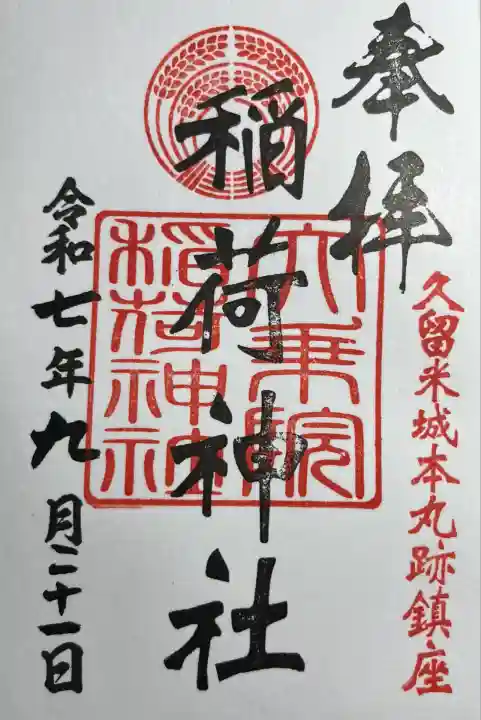 奉拝
久留米城本丸跡鎮座
稲荷神社
六乗院
稲荷神社
令和七年九月二十一日